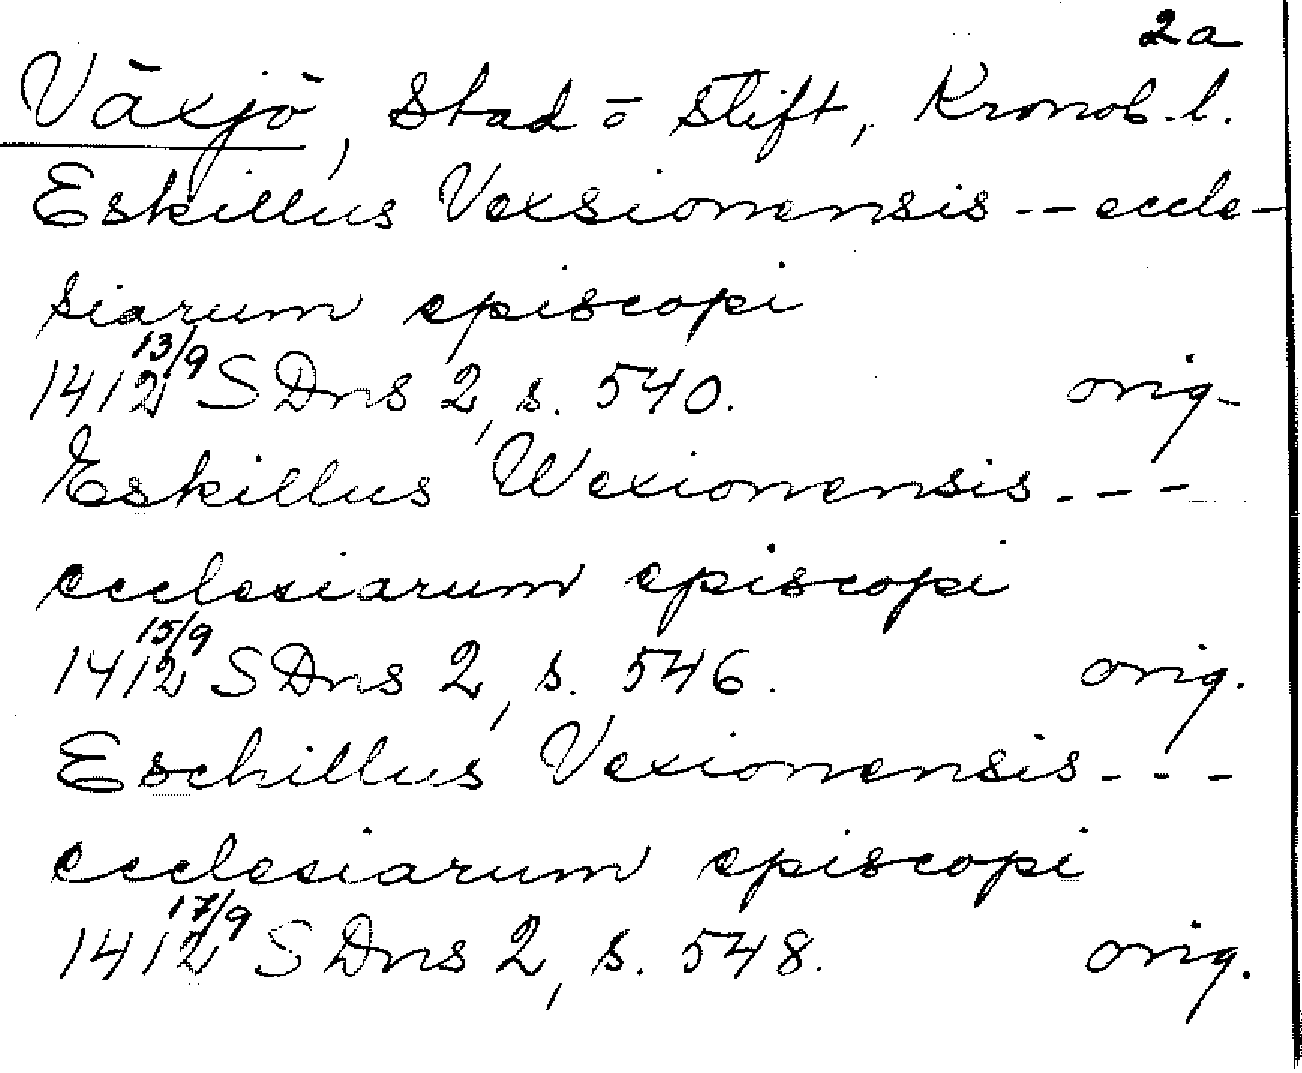 2a
Växjö, Stad o Stift, Kronob. l.
Eskillus Vexsionensis -- eccle-
siarum episcopi
1412 13/9 SDns 2, s. 540. orig.
Eskillus Wexionensis - - -
ecclesiarum episcopi
1412 15/9 SDns 2, s. 546. orig.
Eschillus Vexionensis - - -
ecclesiarum episcopi
1412 17/9 SDns 2, s. 548. orig.